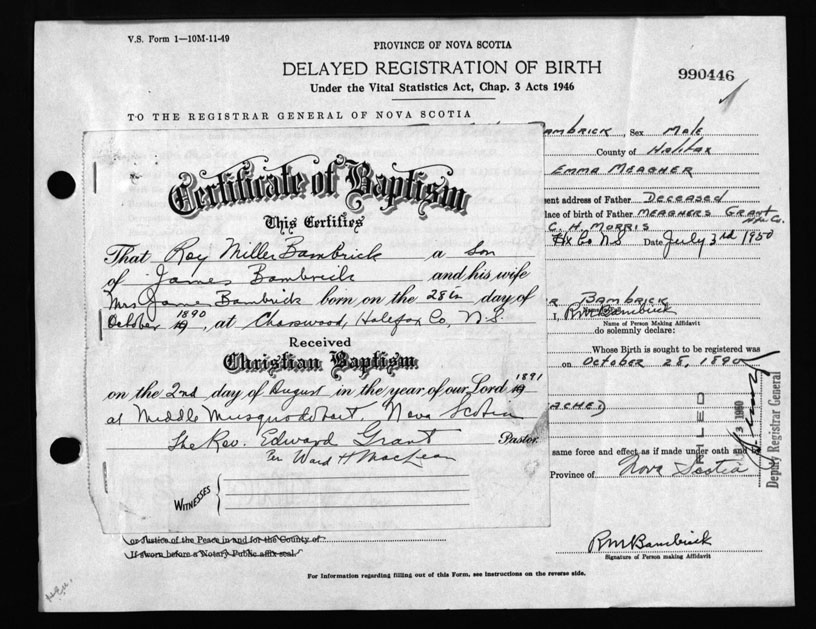 V.S. Form 1—10M-11-49
PROVINCE OF NOVA SCOTIA
DELAYED REGISTRATION OF BIRTH
990446
Under the Vital Statistics Act, Chap. 3 Acts 1946
TO THE REGISTRAR GENERAL OF NOVA SCOTIA
BAMBRICK, Sex Male
County of Halifax
EMMA MEAGHER
ent address of Father DECEASED
lace of birth of Father MEAGHERS GRANT
C. H. MORRIS
Hx Co N.S Date July 3rd 1950
Certificate of Baptism
This Certifies
That Roy Miller Bambrick a Son
of James Bambrick and his wife
Mrs James Bambrick born on the 28th day of
October 1890, at Chaswood, Halifax Co, N.S.
Received
Christian Baptism
on the 2nd day of August in the year of our Lord 1891
at Middle Musquodoboit Nova Scotia
The Rev. Edward Grant Pastor
Per Ward H MacLean
WITNESSES
R BAMBRICK
I, RM Bambrick
Name of Person Making Affidavit
do solemnly declare:
Whose Birth is sought to be registered was
on OCTOBER 28, 1890
ACHED)
FILED
same force and effect as if made under oath and b
Province of Nova Scotia
Deputy Registrar General
or Justice of the Peace in and for the County of
If sworn before a Notary Public affix seal.
RM Bambrick
Signature of Person making Affidavit
For Information regarding filling out of this Form, see instructions on the reverse side.